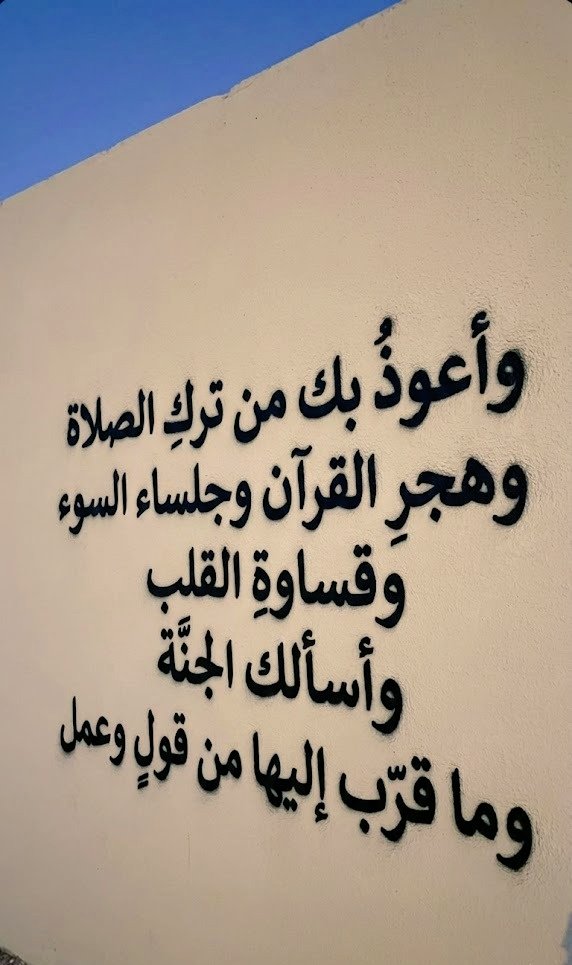 وأعوذُ بك من تركِ الصلاة
وهجرِ القرآن وجلساء السوء
وقساوةِ القلب
وأسألك الجنَّة
وما قرّب إليها من قولٍ وعمل